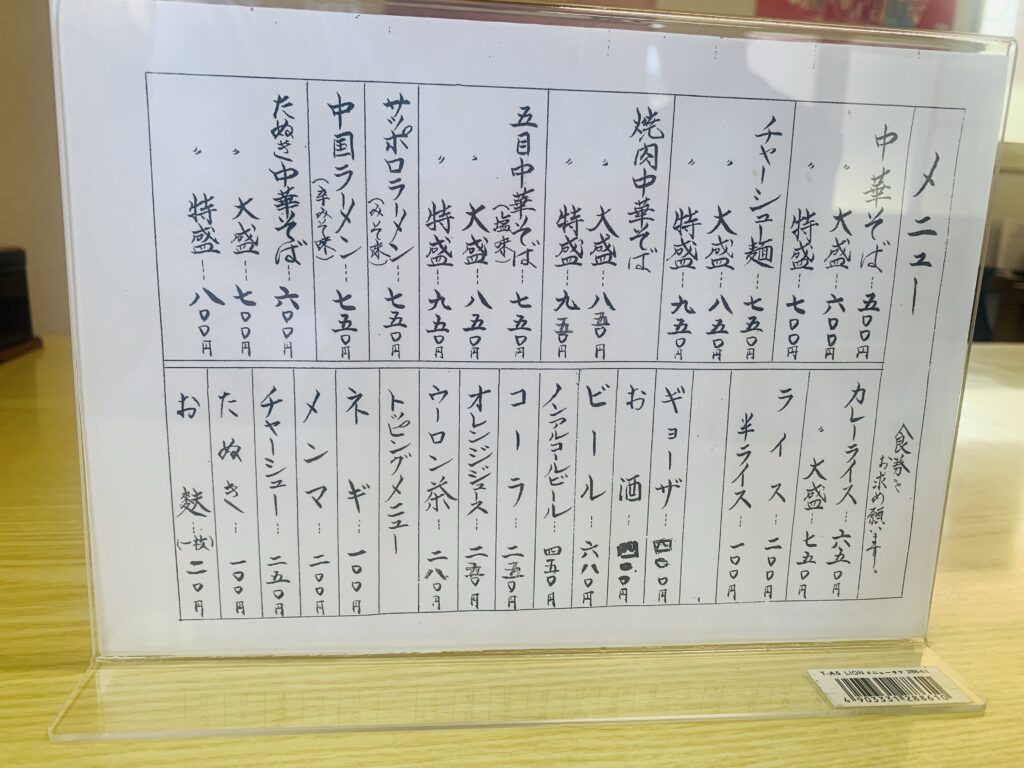 メニュー
中華そば 五〇〇円
〃 大盛 六〇〇円
〃 特盛 七〇〇円
チャーシュー麺 七五〇円
〃 大盛 八五〇円
〃 特盛 九五〇円
焼肉中華そば
〃 大盛 八五〇円
〃 特盛 九五〇円
五目中華そば 七五〇円
(塩味)
〃 大盛 八五〇円
〃 特盛 九五〇円
サッポロラーメン 七五〇円
(みそ味)
中国ラーメン 七五〇円
(辛みそ味)
たぬき中華そば 六〇〇円
〃 大盛 七〇〇円
〃 特盛 八〇〇円
食券を
お求め願います。
カレーライス 六五〇円
〃 大盛 七五〇円
ライス 二〇〇円
半ライス 一〇〇円
ギョーザ 四〇〇円
お酒 四〇〇円
ビール 六八〇円
ノンアルコールビール 四五〇円
コーラ 二五〇円
オレンジジュース 円
ウーロン茶 二八〇円
トッピングメニュー
ネギ 一〇〇円
メンマ 二〇〇円
チャーシュー 二五〇円
たぬき 一〇〇円
お麩(一枚) 二〇円
T-AS LION メニュータテ 288-61